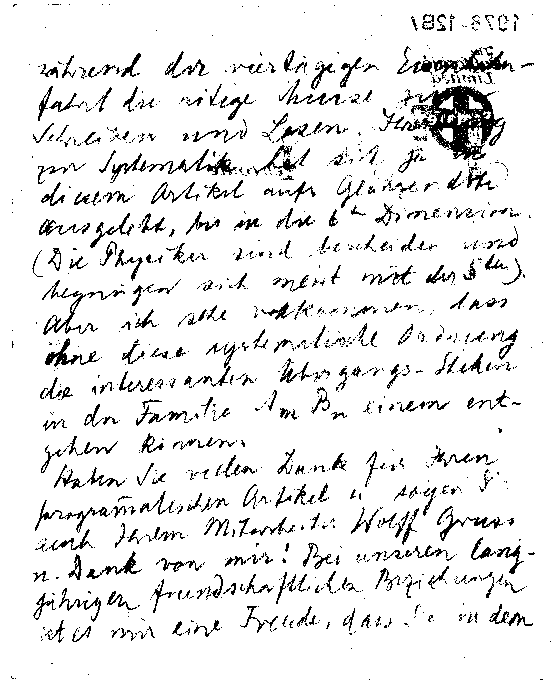 1978-1281
während der viertägigen Eisenbahn-
fahrt die nötige Muse zum
Schreiben und Lesen. Ihr Hang
zur Systematik hat sich ja in
diesem Artikel aufs Glänzendste
ausgelebt, bis in die 6te Dimension.
(Die Physiker sind bescheiden und
begnügen sich meist mit der 5ten).
Aber ich sehe vollkommen, dass
ohne diese systematische Ordnung
die interessanten Übergangs-Stellen
in der Familie Am Bn einem ent-
gehen können.
Haben Sie vielen Dank für Ihren
programatischen Artikel u. sagen S.
auch Ihrem Mitarbeiter Wolff Gruss
u. Dank von mir! Bei unseren lang-
jährigen freundschaftlichen Beziehungen
ist es mir eine Freude, dass Sie in dem